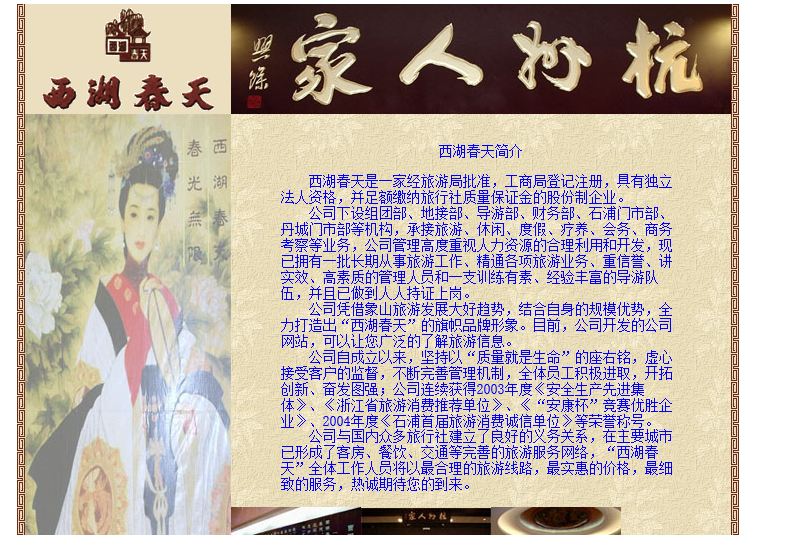 西湖
春天
西湖春天
家人州杭
熙缘
西湖春天
春光無限
西湖春天简介
西湖春天是一家经旅游局批准，工商局登记注册，具有独立
法人资格，并足额缴纳旅行社质量保证金的股份制企业。
公司下设组团部、地接部、导游部、财务部、石浦门市部、
丹城门市部等机构，承接旅游、休闲、度假、疗养、会务、商务
考察等业务，公司管理高度重视人力资源的合理利用和开发，现
已拥有一批长期从事旅游工作、精通各项旅游业务、重信誉、讲
实效、高素质的管理人员和一支训练有素、经验丰富的导游队
伍，并且已做到人人持证上岗。
公司凭借象山旅游发展大好趋势，结合自身的规模优势，全
力打造出“西湖春天”的旗帜品牌形象。目前，公司开发的公司
网站，可以让您广泛的了解旅游信息。
公司自成立以来，坚持以“质量就是生命”的座右铭，虚心
接受客户的监督，不断完善管理机制，全体员工积极进取，开拓
创新、奋发图强；公司连续获得2003年度《安全生产先进集
体》、《浙江省旅游消费推荐单位》、《“安康杯”竞赛优胜企
业》、2004年度《石浦首届旅游消费诚信单位》等荣誉称号。
公司与国内众多旅行社建立了良好的义务关系，在主要城市
已形成了客房、餐饮、交通等完善的旅游服务网络，“西湖春
天”全体工作人员将以最合理的旅游线路，最实惠的价格，最细
致的服务，热诚期待您的到来。
家人州杭